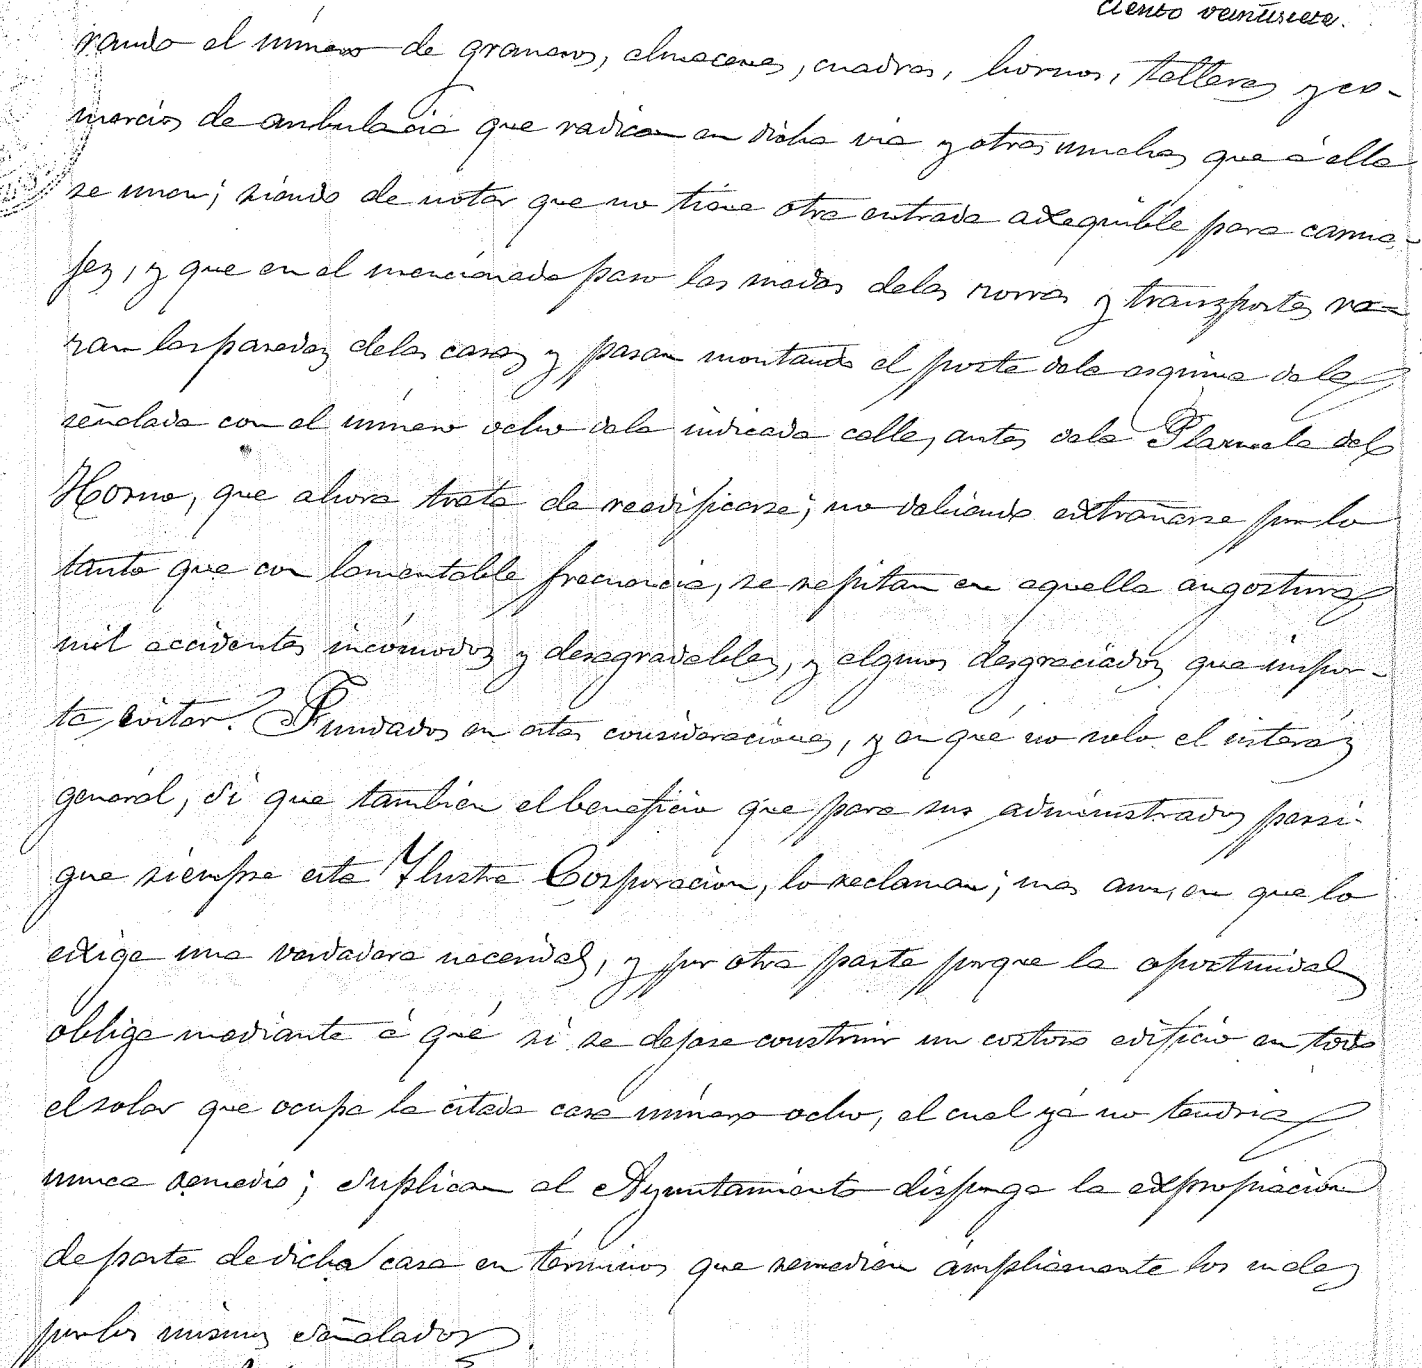 ciento veintisiete.
rando el número de graneros, almacenes, cuadras, hornos, talleres y co-
mercios de ambulacia que radican en dicha via y otras muchas que á ella
se unen; siendo de notar que no tiene otra entrada adxequible para carrua-
jes, y que en el mencionado paso las ruedas delos carros y transportes ro-
zan las paredes delas casas y pasan montando el poste dela esquina dela
señalada con el número ocho dela indicada calle, antes dela Plazuela del
Horno, que ahora trata de reedificarse; no debiendo extrañarse por lo
tanto que con lamentable frecuencia, se repitan en aquella angostura
mil accidentes incómodos y desagradables, y algunos desgraciados que impor-
ta evitar. Fundados en estas consideraciones, y en qué no solo el interés
general, si que tambien el beneficio que para sus administrados persi-
gue siempre esta Ylustre Corporacion, lo reclaman; mas aun, en que lo
exige una verdadera necesidad, y por otra parte porque la oportunidad
obliga mediante á qué si se dejase construir un costoso edificio en todo
el solar que ocupa la citada casa número ocho, el cual yá no tendria
nunca remedio; suplican al Ayuntamiento disponga la expropiacion
de parte de dicha casa en términos que remedien ámpliamente los males
por los mismos señalados.